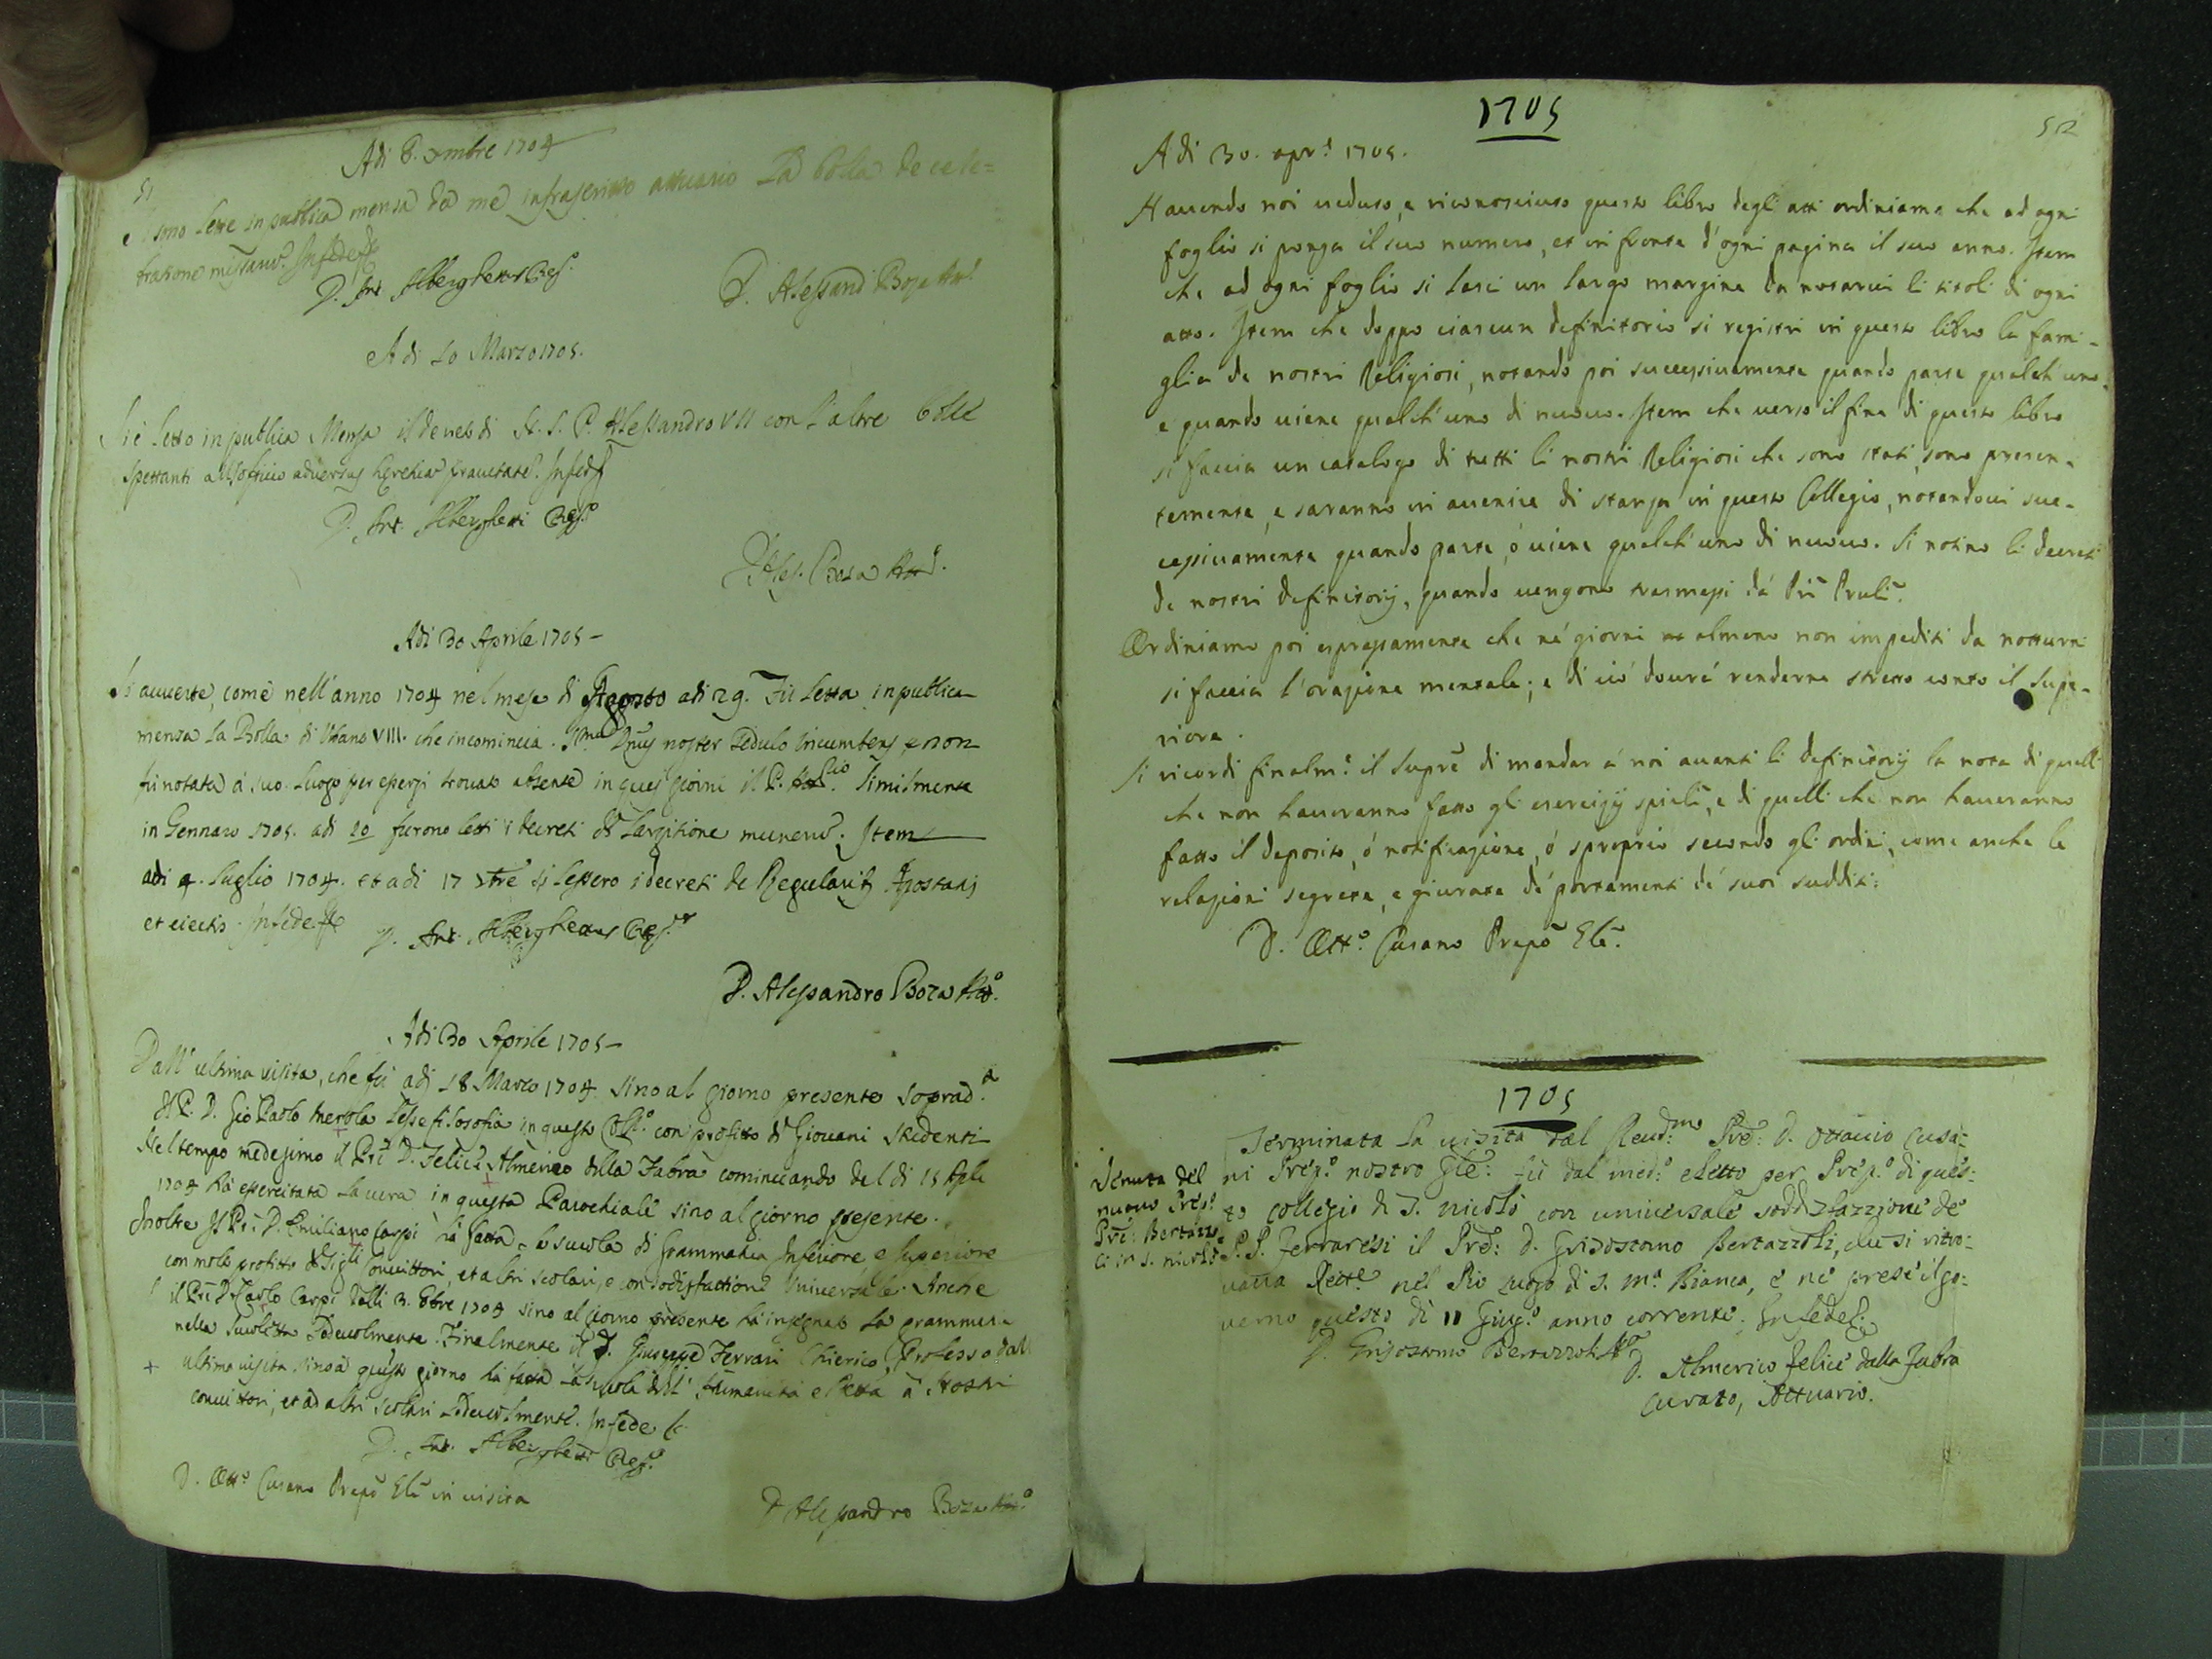 51
Adi 8. Xmbre 1704
sono lette in publica mensa da me infrascritto attuario La Bolla de cele=
bratione missarũ. In fede &c
D. Ant. Alberghetti
D. Alessand. Boza
Adi 10 Marzo 1705.
Si è letto in publica Mensa il decreto di N. S. P. Alessandro VII con l'altre Bolle
spettanti al S. Officio adversus hereticã pravitatẽ. In fede
D. Ant. Alberghetti
D. Ales. Boza
Adi 30 Aprile 1705 -
Si avverte, come nell'anno 1704 nel mese di Agosto adi 29. Fù letta in publica
mensa la Bolla di Urbano VIII. che incomincia. Dñus noster sedulo incumbens, e non
fù notata à suo luogo per essersi trovato absente in quei giorni il P. Similmente
in Gennaro 1705. adi 20 furono letti i decreti de Largitione munerũ; Item
adi 4. Luglio 1704. et adi 17 si lessero i decreti de Regularib. Apostatis
et eiectis. In fede &c D. Ant. Alberghetti
D. Alessandro Boza Att.o
Adi 30 Aprile 1705 -
Dall'ultima visita, che fù adi 18 Marzo 1704. sino al giorno presente soprad.a
Il P. D. Gio Paolo Merola lesse filosofia in questo Coll.o con profitto de Giovani studenti
Nel tempo medesimo il Prẽ D. Felice Almerico della Fabra cominciando del di 15 Aple
1704 hà essercitata la cura in questa Parochiale sino al giorno presente.
Inoltre Il Prẽ D. Emiliano Carpi hà fatta la scuola di Grammatica Inferiore e superiore
con molto profitto de Sig.li Convittori, et altri scolari, e con sodisfattione Universale. Anche
il Prẽ D. Carlo Carpi dalli 3. 8bre 1704 sino al giorno presente hà insegnato la grammatica
nella scoletta lodevolmente. Finalmente il D. Giuseppe Ferrari Chierico Professo dall
ultima visita sino à questo giorno hà fatta la scuola dell'Humanità e Retta à Nostri
convittori, et ad altri scolari lodevolmente. In fede &c
D. Ant. Alberghetti
D. Ott.o Cusano Prepõ Glẽ in visita
D Alessandro Boza Att.o
1705
52
Adi 30. apr.e 1705.
Havendo noi veduto, e riconosciuto questo libro degli atti ordiniamo che ad ogni
foglio si ponga il suo numero, et in fronte d'ogni pagina il suo anno. Item
che ad ogni foglio si lasci un largo margine da notarvi li titoli di ogni
atto. Item che doppo ciascun definitorio si registri in questo libro la fami-
glia de nostri Religiosi, notando poi successivamente quando parte qualch'uno,
e quando viene qualch'uno di nuovo. Item che verso il fine di questo libro
si faccia un catalogo di tutti li nostri Religiosi che sono stati, sono presen-
temente, e saranno in avenire di stanza in questo Collegio, notandovi suc-
cessivamente quando parte, ò viene qualch'uno di nuovo. Si notino li decreti
de nostri definitorij, quando vengono trasmessi dà Prĩ Prvlĩ.
Ordiniamo poi espressamente che né giorni almeno non impediti da notturni
si faccia l'orazione mentale; e di ciò dovrà renderne stretto conto il Supe-
riore.
Si ricordi finalm.e il Suprẽ di mandar à noi avanti li definitorij la nota di quelli
che non haveranno fatto gli esercizij spirlĩ, e di quelli che non haveranno
fatto il deposito, ò notificazione, ò sproprio secondo gli ordini, come anche le
relazioni segrete, e giurate dé portamenti dé suoi sudditi.
D. Ott.o Cusano Prepõ Glẽ.
1705
Terminata la visita dal Reud.mo Prẽ: D. Ottavio Cusa-
ni Prep.o nostro Glẽ: fù dal med.o eletto per Prep.o di ques-
to collegio di S. Nicolò con universale soddisfazzione de
P.P. Ferraresi il Prẽ: D. Grisostomo Bertazzoli, che si ritro-
vava Rett.e nel Pio luogo di S. M.a Bianca, e ne prese il go-
verno questo dì 11 Giug.o anno corrente. In fede &c
Venuta del
nuovo Prep.o
Prẽ: Bertazzo
li in S. Nicolò
D. Grisostomo Bertazzoli
D. Almerico Felice dalla Fabra
Curato, Attuario.